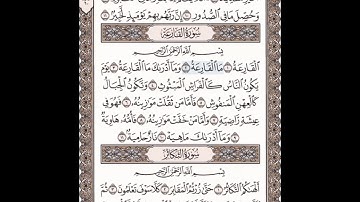 وَحُصِّلَ مَا فِي الصُّدُورِ ۝ إِنَّ رَبَّهُم بِهِمْ يَوْمَئِذٍ لَّخَبِيرٌ
سُورَةُ القَارِعَةِ
بِسْمِ اللَّهِ الرَّحْمَٰنِ الرَّحِيمِ
الْقَارِعَةُ ۝ مَا الْقَارِعَةُ ۝ وَمَا أَدْرَاكَ مَا الْقَارِعَةُ ۝ يَوْمَ
يَكُونُ النَّاسُ كَالْفَرَاشِ الْمَبْثُوثِ ۝ وَتَكُونُ الْجِبَالُ
كَالْعِهْنِ الْمَنفُوشِ ۝ فَأَمَّا مَن ثَقُلَتْ مَوَازِينُهُ ۝ فَهُوَ فِي
عِيشَةٍ رَّاضِيَةٍ ۝ وَأَمَّا مَنْ خَفَّتْ مَوَازِينُهُ ۝ فَأُمُّهُ هَاوِيَةٌ
۝ وَمَا أَدْرَاكَ مَا هِيَهْ ۝ نَارٌ حَامِيَةٌ ۝
سُورَةُ التَّكَاثُرِ
بِسْمِ اللَّهِ الرَّحْمَٰنِ الرَّحِيمِ
أَلْهَاكُمُ التَّكَاثُرُ ۝ حَتَّىٰ زُرْتُمُ الْمَقَابِرَ ۝ كَلَّا سَوْفَ تَعْلَمُونَ